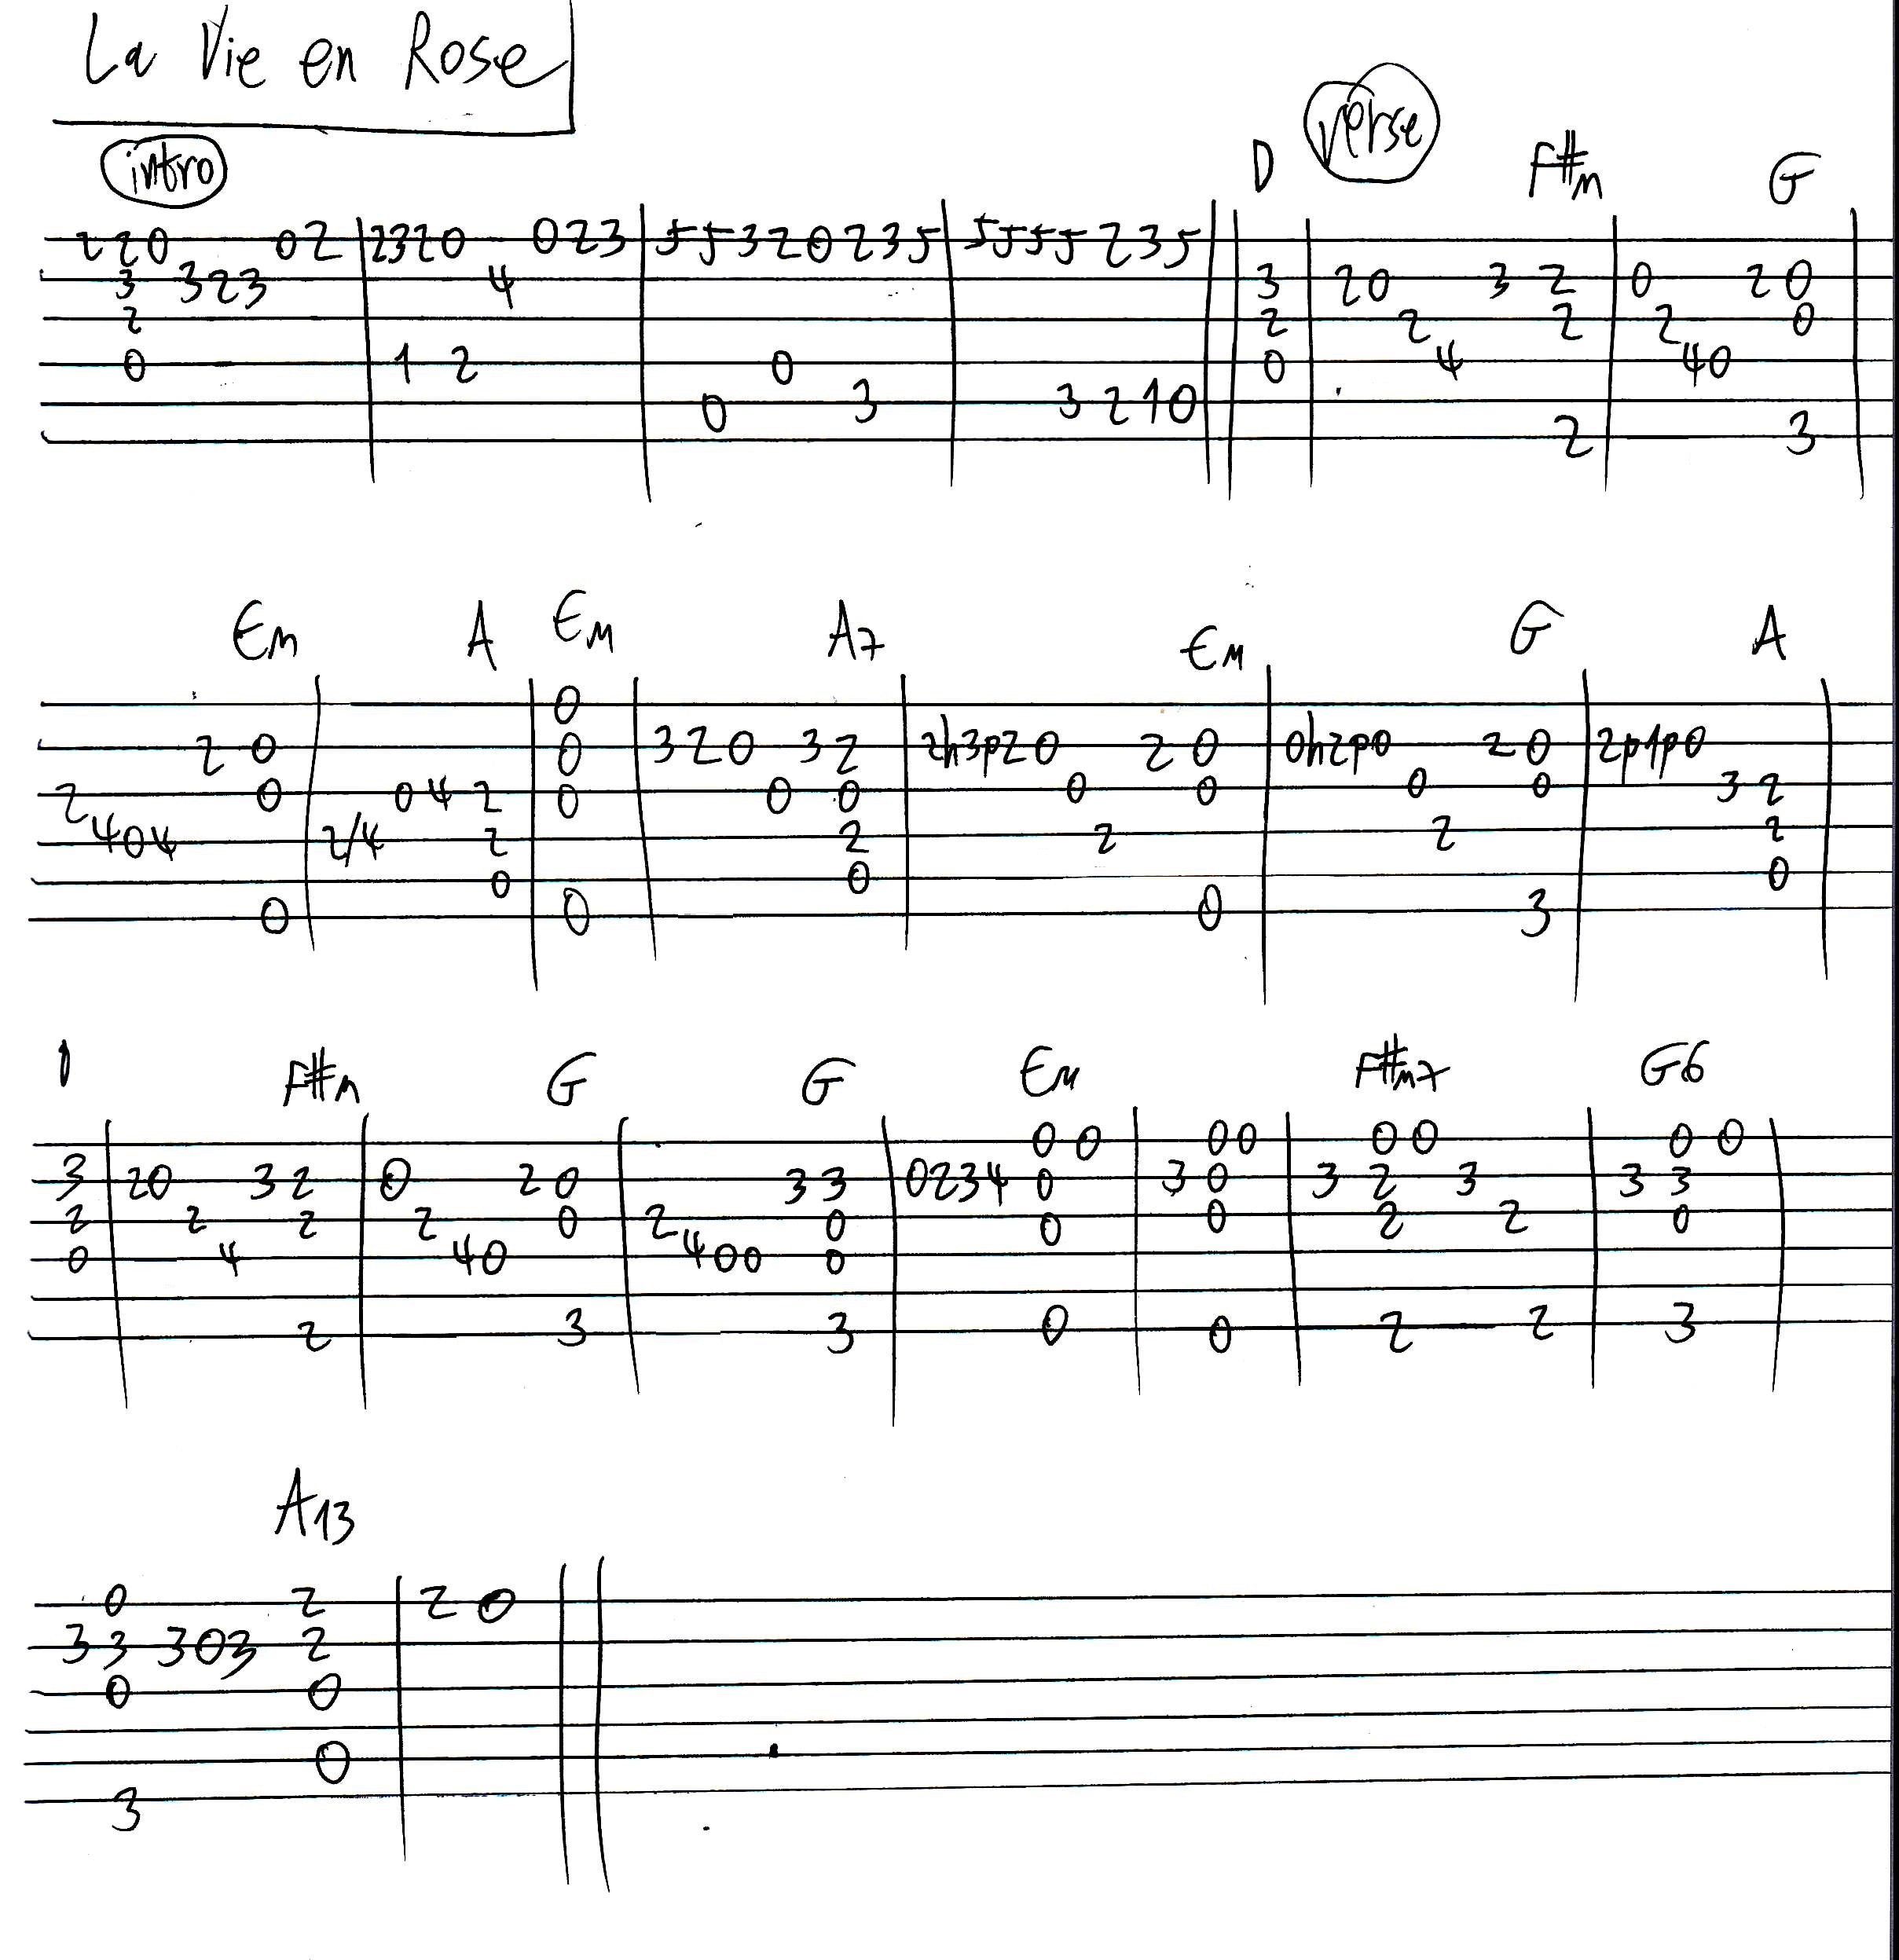 La Vie en Rose
intro
verse
D F#m G
2 2 0 0 2 2 3 2 0 0 2 3 5 5 3 2 0 2 3 5 5 5 5 5 2 3 5
3 3 2 3 4 3 2 0 3 2 0 2 0
2 2 2 2 2 0
0 1 2 0 0 4 4 0
0 3 3 2 1 0
2 3
Em A Em A7 Em G A
0
2 0 0 3 2 0 3 2 2h3p2 0 2 0 0h2p0 2 0 2p1p0
2 0 0 4 2 0 0 0 0 0 0 0 3 2
4 0 4 2/4 2 2 2 2 2
0 0 0
0 0 0 3
F#m G G Em F#m7 G6
0 0 0 0 0 0 0 0
3 2 0 3 2 0 2 0 3 3 0 2 3 4 0 3 0 3 2 3 3 3
2 2 2 2 0 2 0 0 0 2 2 0
0 4 4 0 4 0 0 0
2 3 3 0 0 2 2 3
A13
0 2 2 0
3 3 3 0 3 2
0 0
0
3